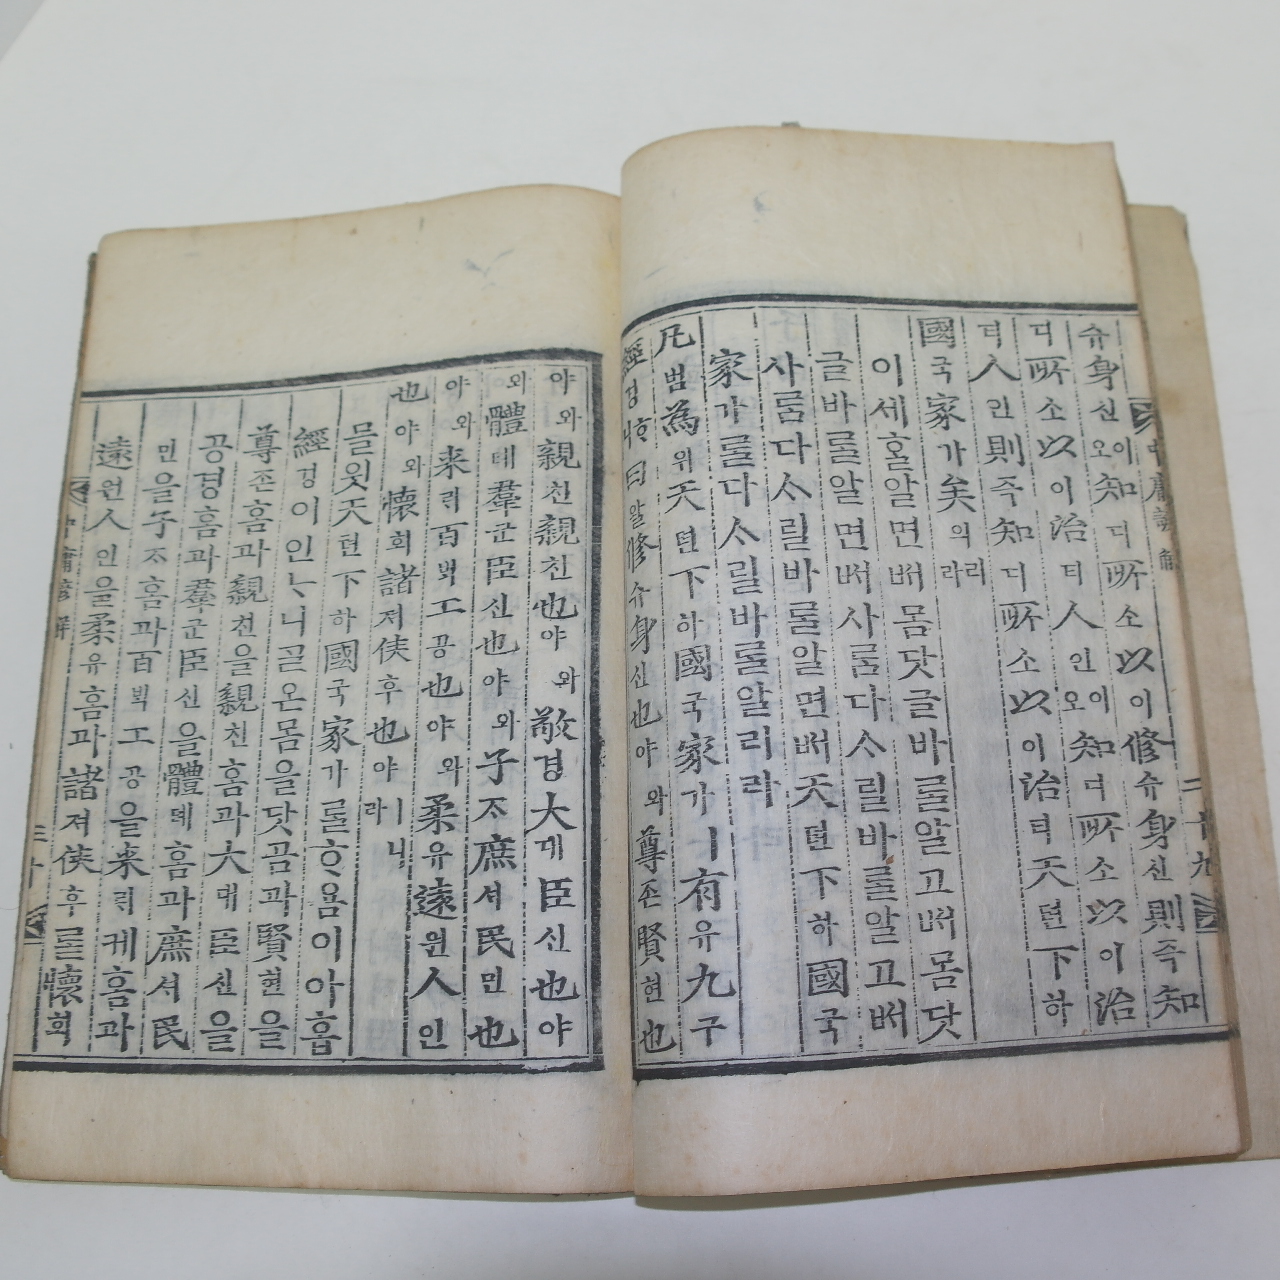 中庸諺解 二十九
슈身신이오知디所소以이修슈身신則즉知
디所소以이治티人인이오知디所소以이治
티人인則즉知디所소以이治티天텬下하
國국家가矣의리라
이세흘알면ᄡᅥ몸닷글바ᄅᆞᆯ알고ᄡᅥ몸닷
글바ᄅᆞᆯ알면ᄡᅥ사ᄅᆞᆷ다ᄉᆞ릴바ᄅᆞᆯ알고ᄡᅥ
사ᄅᆞᆷ다ᄉᆞ릴바ᄅᆞᆯ알면ᄡᅥ天텬下하國국
家가ᄅᆞᆯ다ᄉᆞ릴바ᄅᆞᆯ알리라
凡범為위天텬下하國국家가ㅣ有유九구
經경ᄒᆞ니曰왈修슈身신也야와尊존賢현也
야와親친親친也야와敬경大대臣신也야
와體톄羣군臣신也야와子ᄌᆞ庶셔民민也
야와来ᄅᆡ百ᄇᆡᆨ工공也야와柔유遠원人인
也야와懷회諸져侯후也야ㅣ니라
믈읫天텬下하國국家가ᄅᆞᆯᄒᆞ욤이아홉
經경이인ᄂᆞ니ᄀᆞᆯ온몸을닷곰과賢현을
尊존홈과親친을親친홈과大대臣신을
공경홈과羣군臣신을體톄홈과庶셔民
민을子ᄌᆞ홈과百ᄇᆡᆨ工공을来ᄅᆡ케홈과
遠원人인을柔유홈과諸져侯후ᄅᆞᆯ懷회
中庸諺解 三十